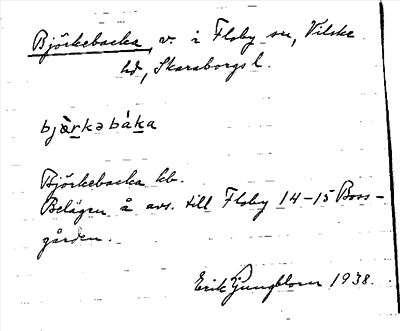 Björkebacka, v. i Floby sn, Vilske
hd, Skaraborgs l.
bjæ̀rkə bàka
Björkebacka hb.
Belägen å avs. till Floby 14-15 Boss-
gården.
Erik Ljungblom 1938.